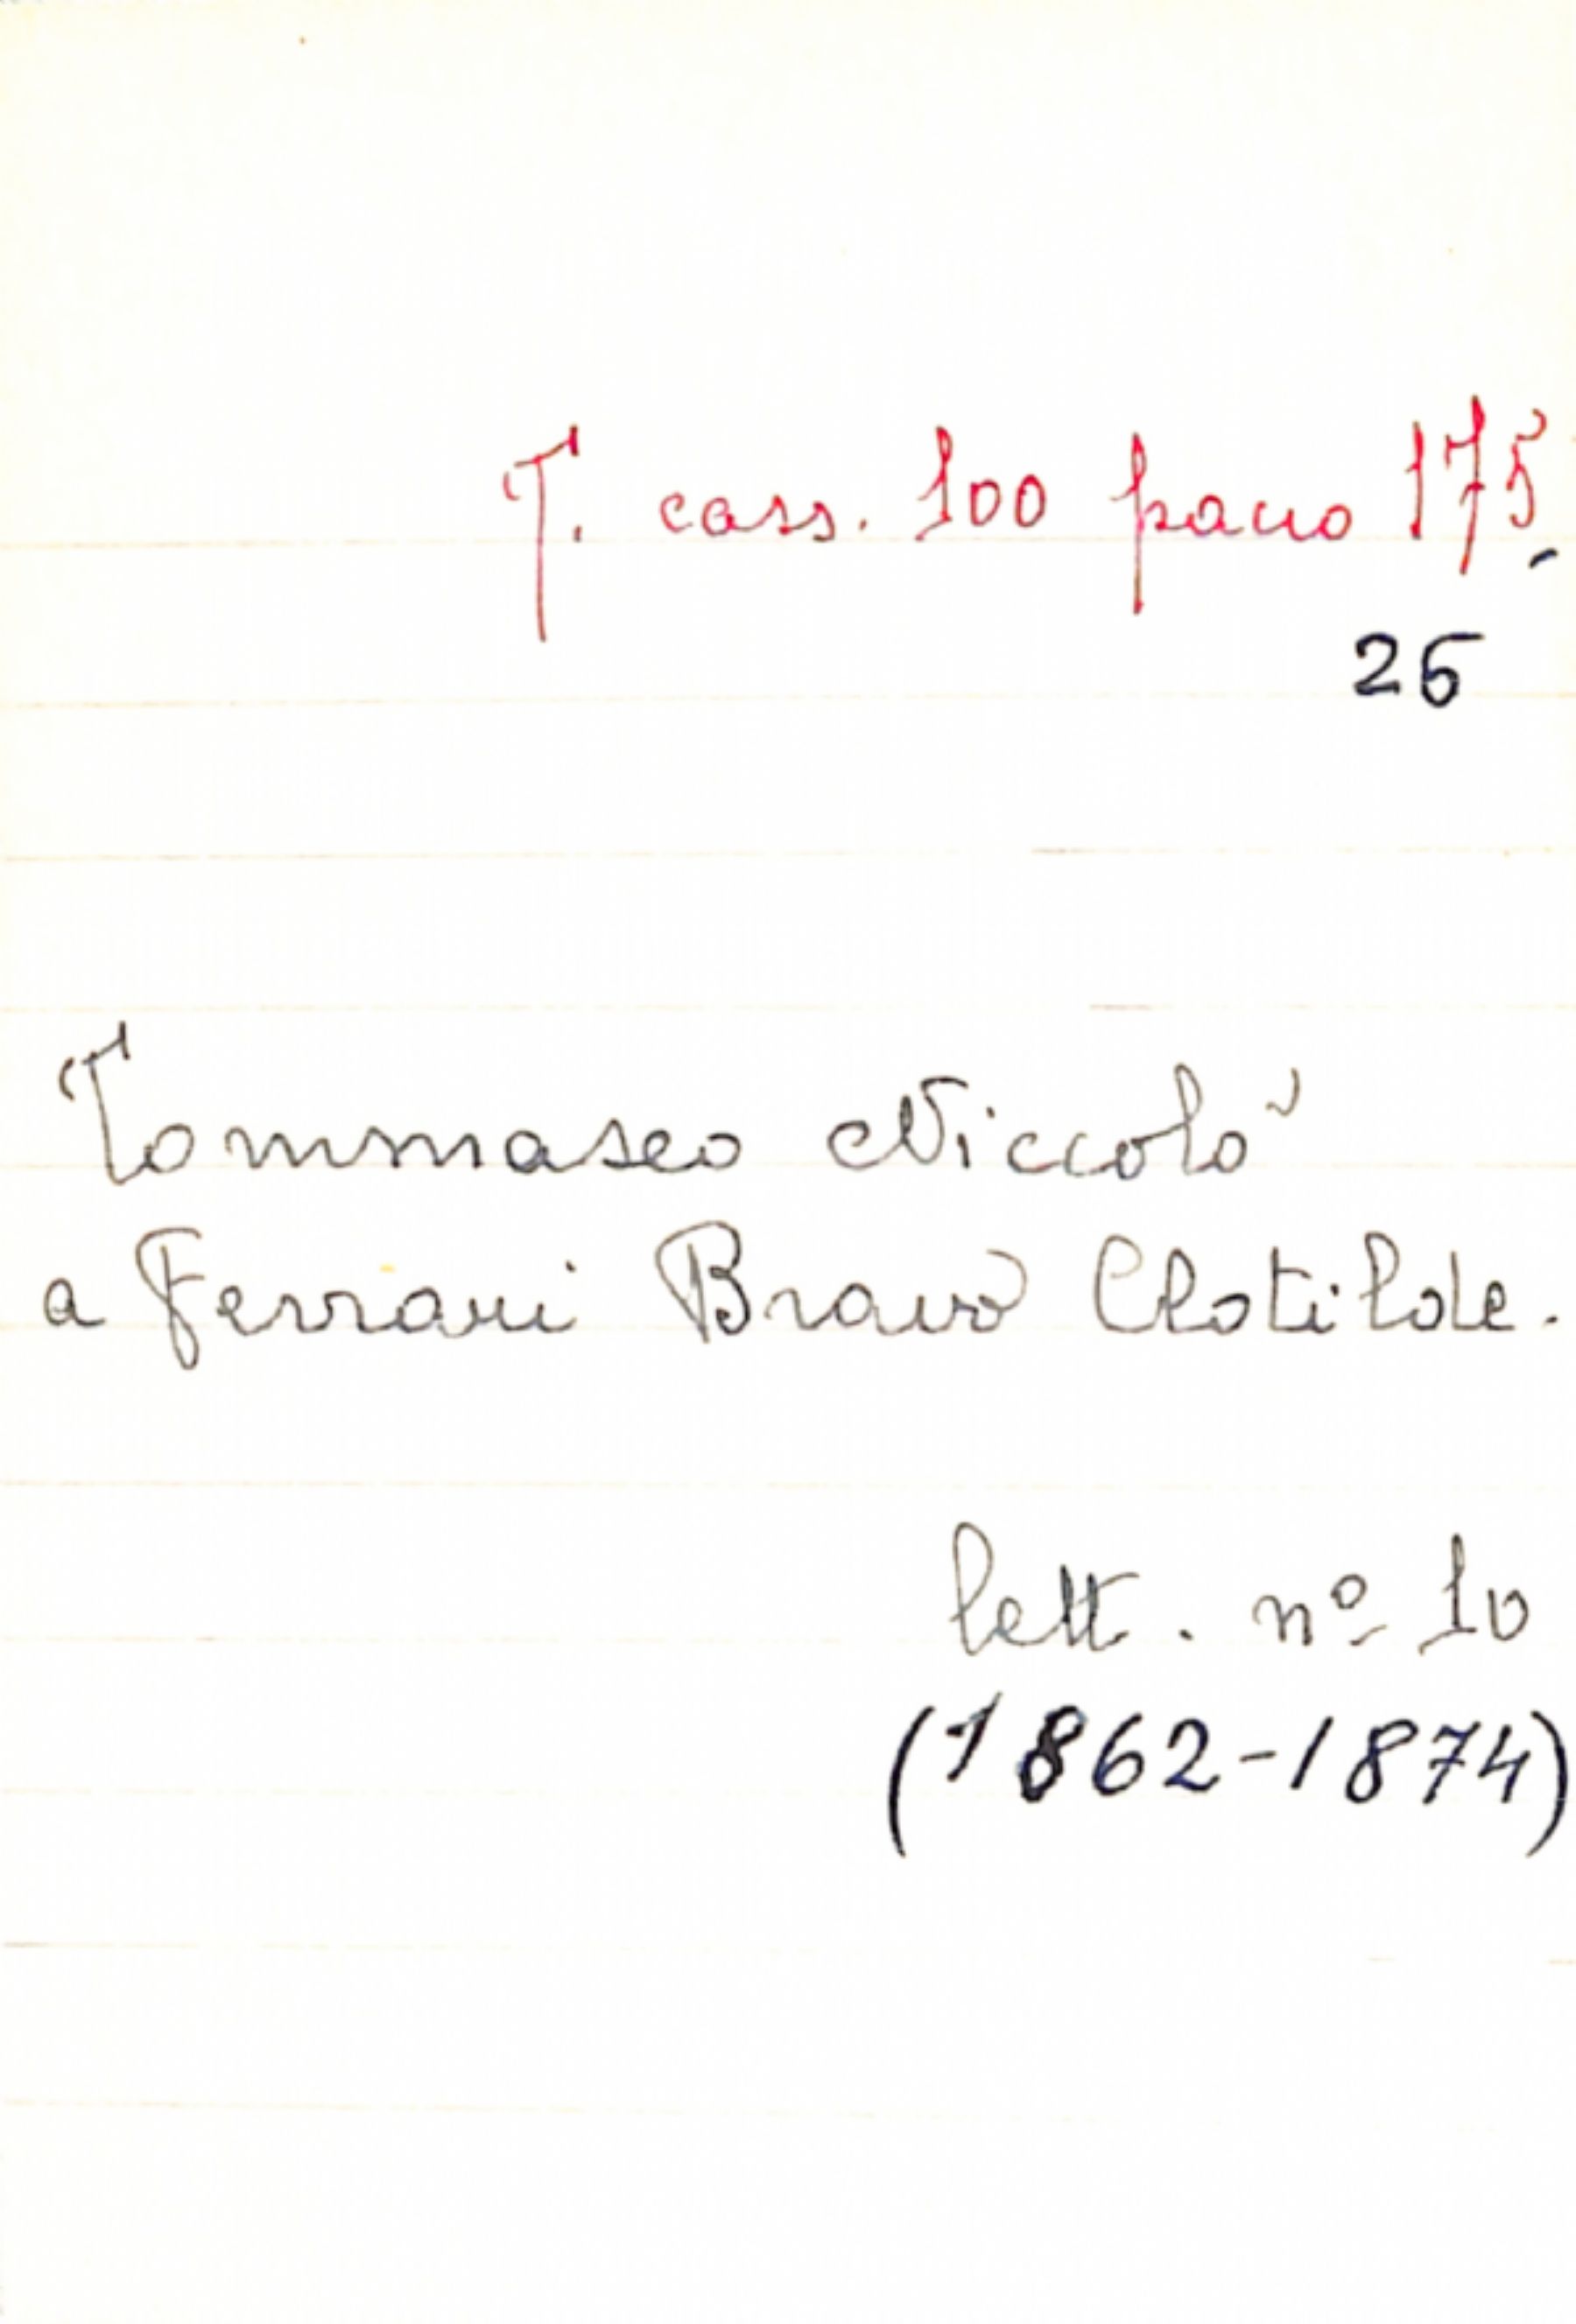 T. cass. 100 pacco 175.
26
Tommaseo Niccolò
a Ferrari Bravo Clotilde.
lett. nº 10
(1862-1874)